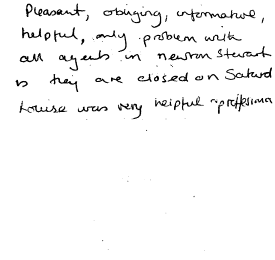 Pleasant, obliging, informative,
helpful, only problem with
all agents in newton Stewart
is they are closed on Saturd
Louise was very helpful + profession